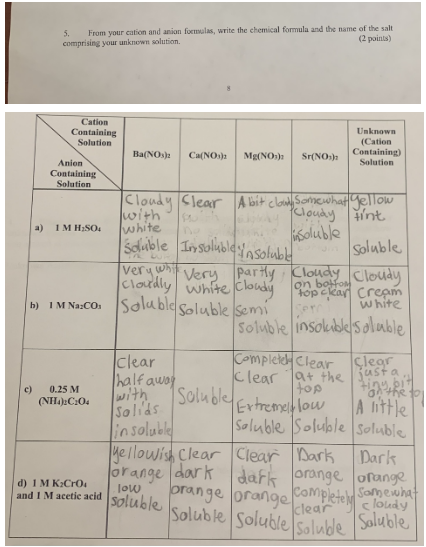 5. From your cation and anion formulas, write the chemical formula and the name of the salt
comprising your unknown solution. (2 points)
8
Cation
Containing
Solution
Anion
Containing
Solution
Ba(NO₃)₂
Ca(NO₃)₂
Mg(NO₃)₂
Sr(NO₃)₂
Unknown
(Cation
Containing)
Solution
a) 1 M H₂SO₄
Cloudy
with
white
Soluble
Clear
Insoluble
A bit cloudy
insoluble
Somewhat
Cloudy
insoluble
Yellow
tint
Soluble
b) 1 M Na₂CO₃
Very whi
cloardly
Soluble
Very
white
Soluble
Partly
Cloudy
Semi
Soluble
Cloudy
on bottom
top clear
insoluble
Cloudy
Cream
white
Soluble
c) 0.25 M
(NH₄)₂C₂O₄
Clear
half away
with
Solids
insoluble
Soluble
Completely
Clear
Extremely
Soluble
Clear
at the
top
low
Soluble
Clear
just a
tiny bit
on the to
A little
Soluble
d) 1 M K₂CrO₄
and 1 M acetic acid
Yellowish
orange
low
Soluble
Clear
dark
orange
Soluble
Clear
dark
orange
Soluble
Dark
orange
Completely
clear
Soluble
Dark
orange
Somewhat
cloudy
Soluble